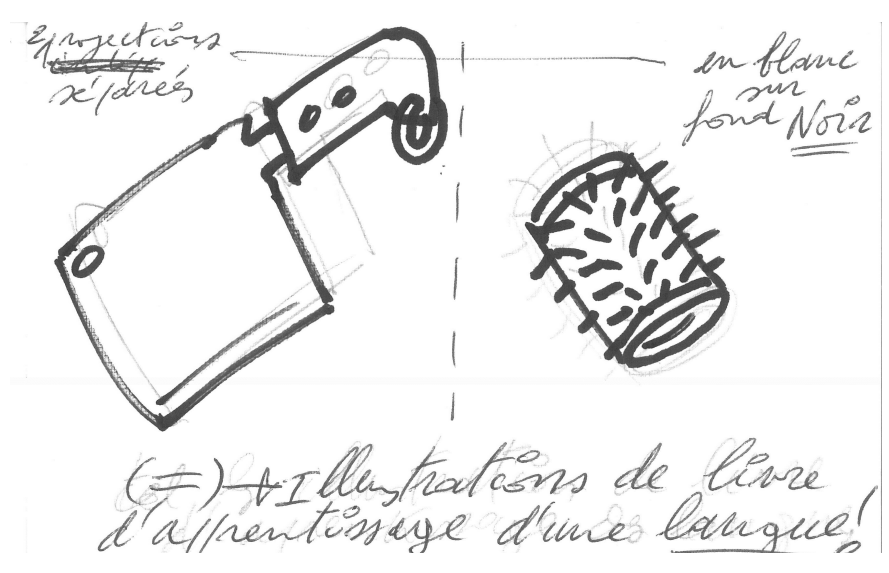 2 projections
séparées
en blanc
sur
fond Noir
(=) → Illustrations de livre
d'apprentissage d'une langue!